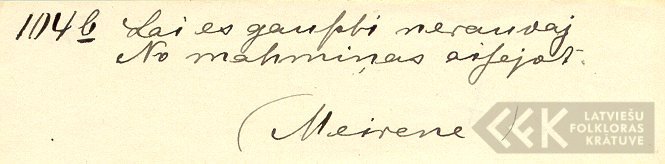 104 b Lai es gauſchi nerauvaj
No mahmiņas aiſejot.
(Meirene)
LATVIEŠU
FOLKLORAS
KRĀTUVE